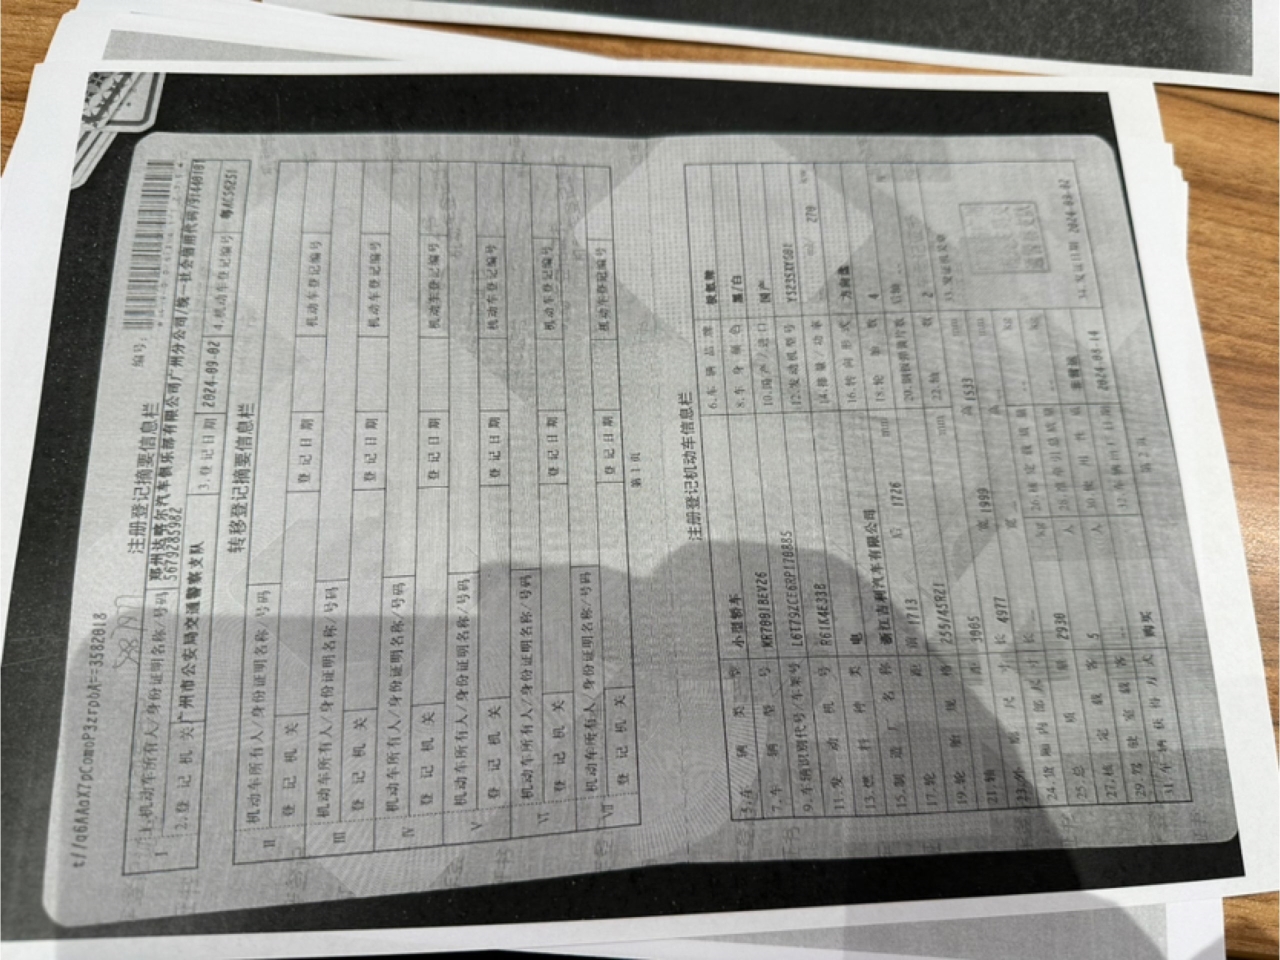 t//q6AAoX7pComoP3zrpbA==3582018
编号:
注册登记摘要信息栏
I 1.机动车所有人/身份证明名称/号码 郑州达喀尔汽车俱乐部有限公司广州分公司/统一社会信用代码/91440101
567928598Z
2.登记机关 广州市公安局交通警察支队 3.登记日期 2024-09-02 4.机动车登记编号 粤AC56251
转移登记摘要信息栏
II 机动车所有人/身份证明名称/号码
登记机关 登记日期 机动车登记编号
III 机动车所有人/身份证明名称/号码
登记机关 登记日期 机动车登记编号
IV 机动车所有人/身份证明名称/号码
登记机关 登记日期 机动车登记编号
V 机动车所有人/身份证明名称/号码
登记机关 登记日期 机动车登记编号
VI 机动车所有人/身份证明名称/号码
登记机关 登记日期 机动车登记编号
VII 机动车所有人/身份证明名称/号码
登记机关 登记日期 机动车登记编号
第1页
注册登记机动车信息栏
5.车辆类型 小型轿车 6.车辆品牌 极氪牌
7.车辆型号 MR7001BEV26 8.车身颜色 黑/白
9.车辆识别代号/车架号 L6T79ZCE6RP170885 10.国产/进口 国产
11.发动机号 R61K4E33B 12.发动机型号 YSZ35XYG01
13.燃料种类 电 14.排量/功率 ml/ 270 kw
15.制造厂名称 浙江吉利汽车有限公司 16.转向形式 方向盘
17.轮距 前 1713 后 1726 mm 18.轮胎数 4
19.轮胎规格 255/45R21 20.钢板弹簧片数 后轴
21.轴距 3005 mm 22.轴数 2
23.外廓尺寸 长 4977 宽 1999 高 1533 mm 33.发证机关章
24.货厢内部尺寸 长 宽 高 mm
25.总质量 2930 kg 26.核定载质量 kg
27.核定载客 5 人 28.准牵引总质量 kg
29.驾驶室载客 人 30.使用性质
31.车辆获得方式 购买 32.车辆出厂日期 2024-08-14 34.发证日期 2024-09-02
第2页